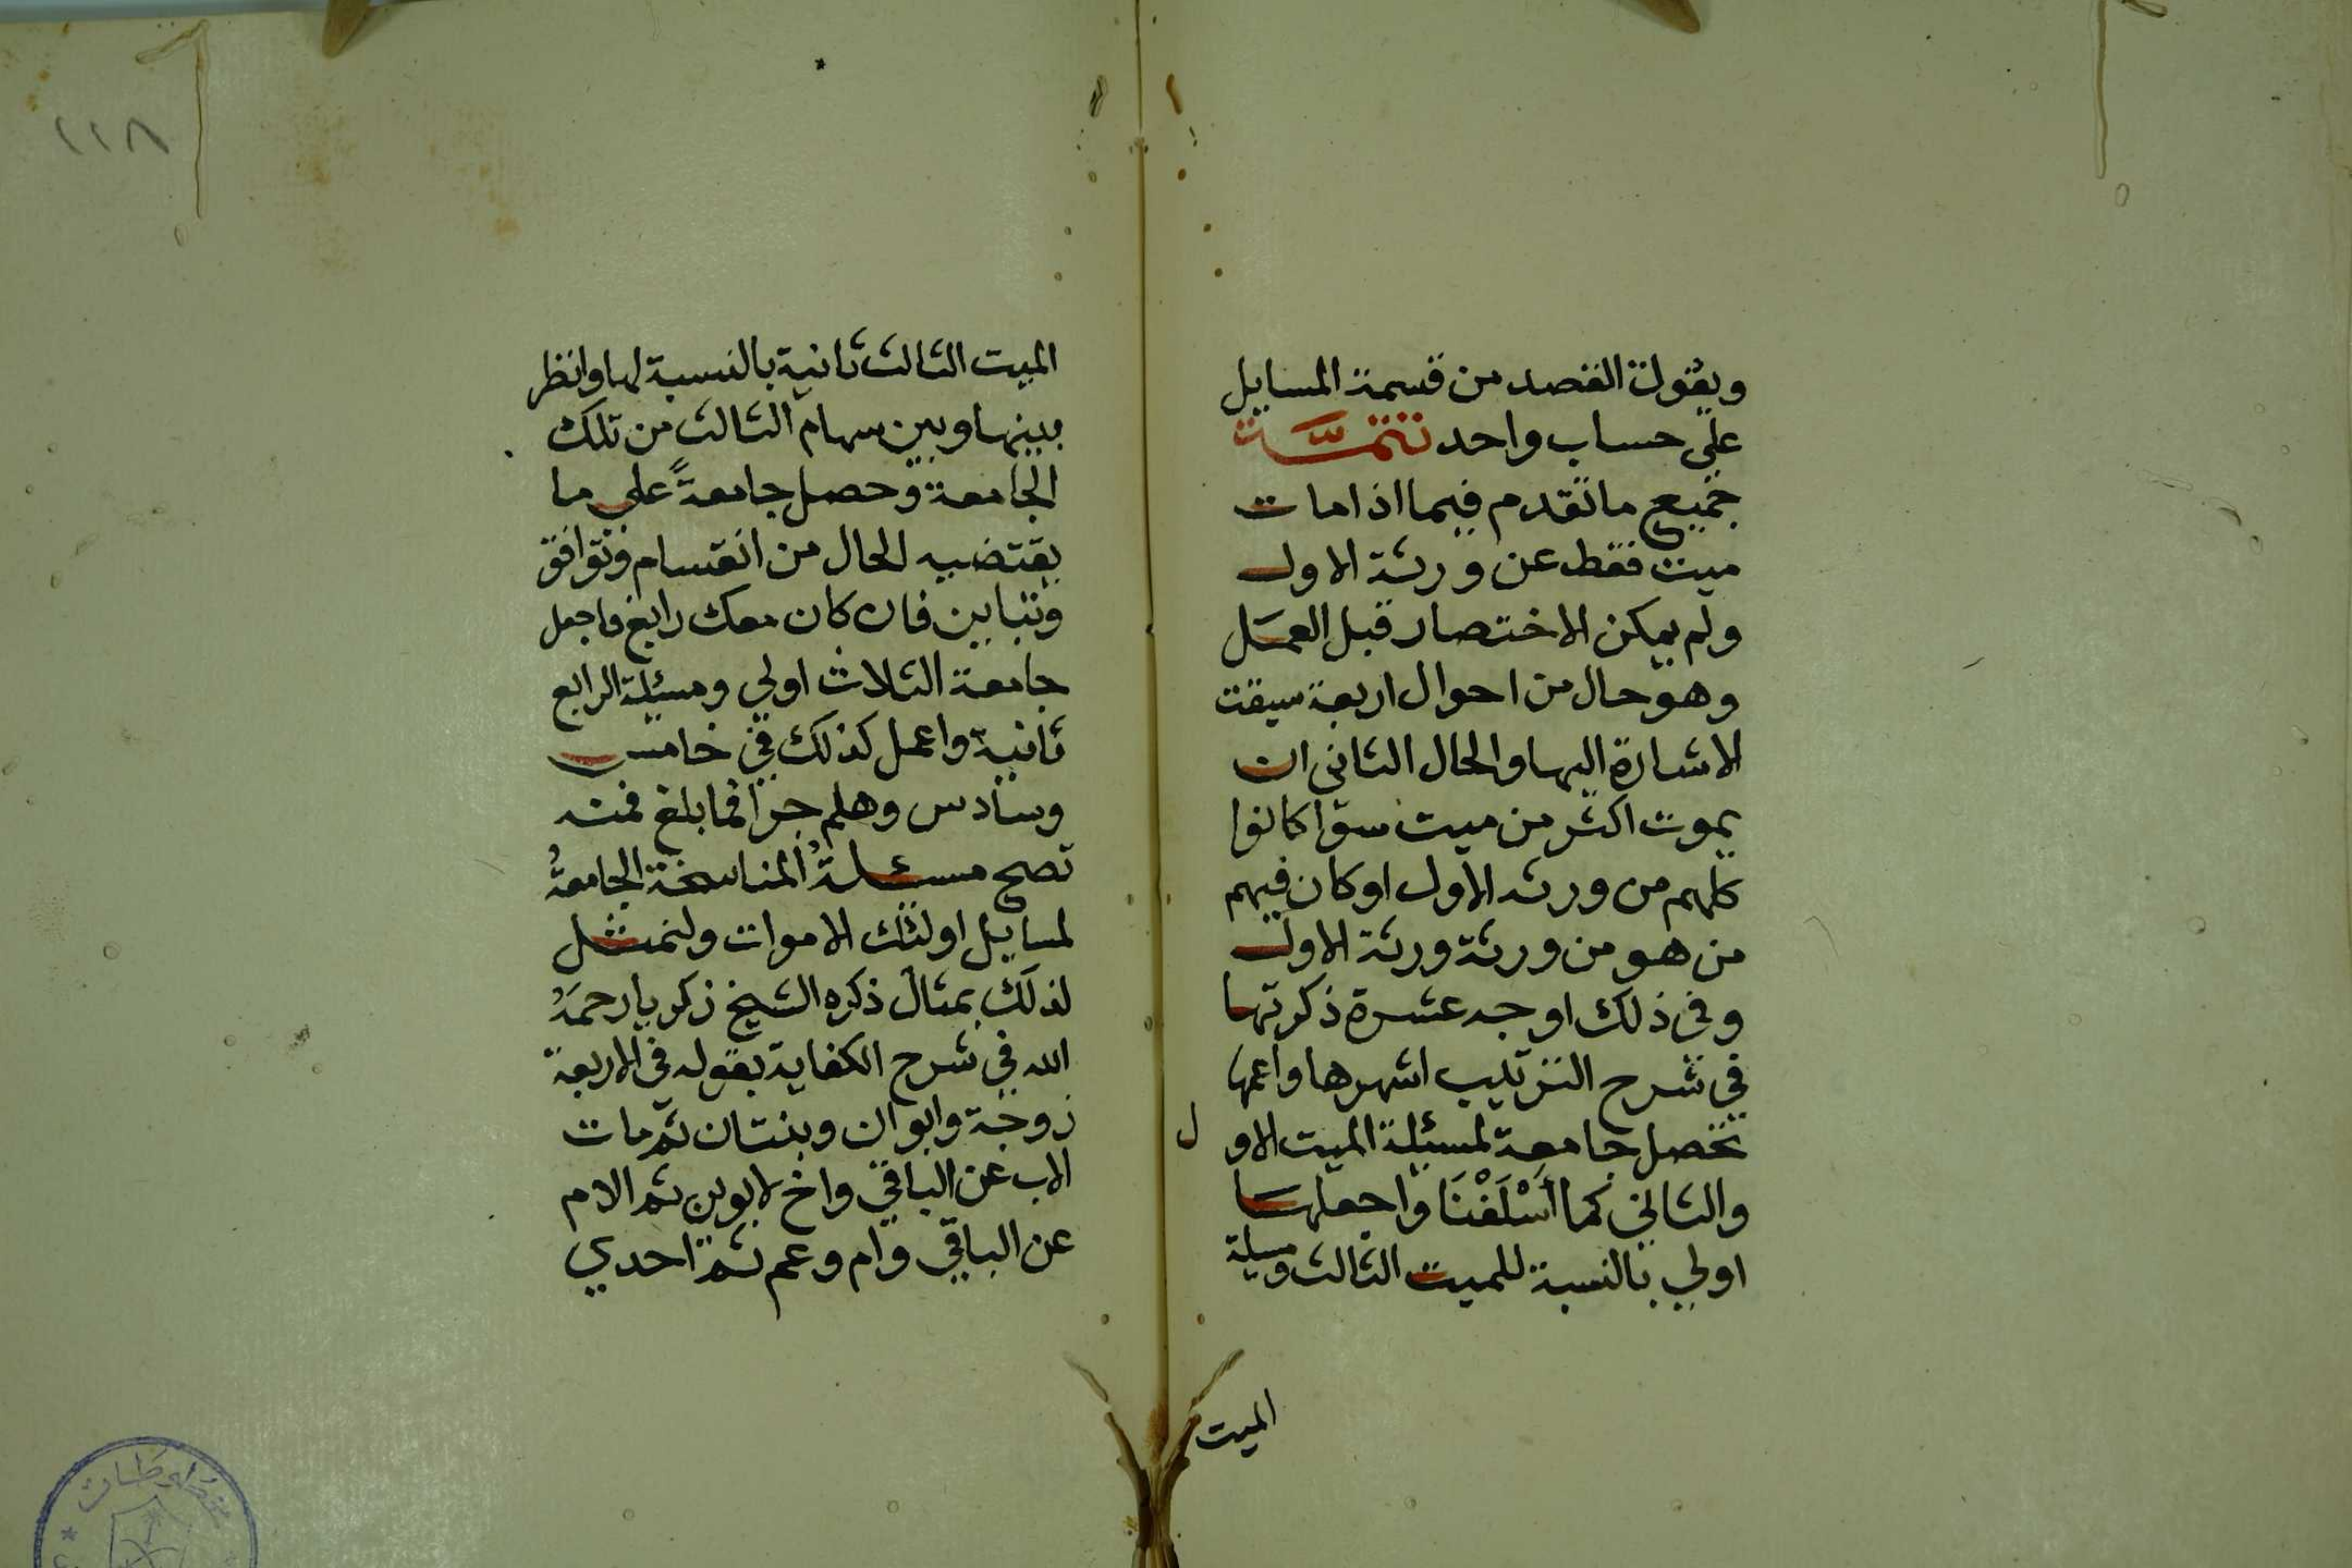 ويقولة القصد من قسمة المسايل
على حساب واحد تتمَّة
جميع ما تقدم فيما اذا مات
ميت فقط عن ورثة الاول
ولم يمكن الاختصار قبل العمل
وهو حال من احوال اربعة سبقت
الاشارة اليها والحال الثاني ان
يموت اكثر من ميت سوا كانوا
كلهم من ورثه الاول او كان فيهم
من هو من ورثة ورثة الاول
وفي ذلك اوجه عشرة ذكرتها
في شرح الترتيب اشهرها واعمها
تحصل جامعة لمسئلة الميت الاو ل
والثاني كما أَسْلَفْنَا واجعلها
اولي بالنسبة للميت الثالث ومسيلة
الميت
١١٨
الميت الثالث ثانية بالنسبة لها وانظر
بينها وبين سهام الثالث من تلك
الجامعة وحصل جامعةً علي ما
يقتضيه الحال من انقسام وتوافق
وتباين فان كان معك رابع فاجعل
جامعة الثلاث اولي ومسئلة الرابع
ثانية واعمل كذلك في خامس
وسادس وهلم جرا فما بلغ فمنه
تصح مسئلةُ المناسخة الجامعةُ
لمسايل اولئك الاموات ولنمثل
لذلك بمثال ذكره الشيخ زكريا رحمَهُ
الله في شرح الكفاية بقوله في الاربعة
زوجة وابوان وبنتان ثم مات
الاب عن الباقي واخ لابوين ثم الام
عن الباقي وام وعم ثم احدي